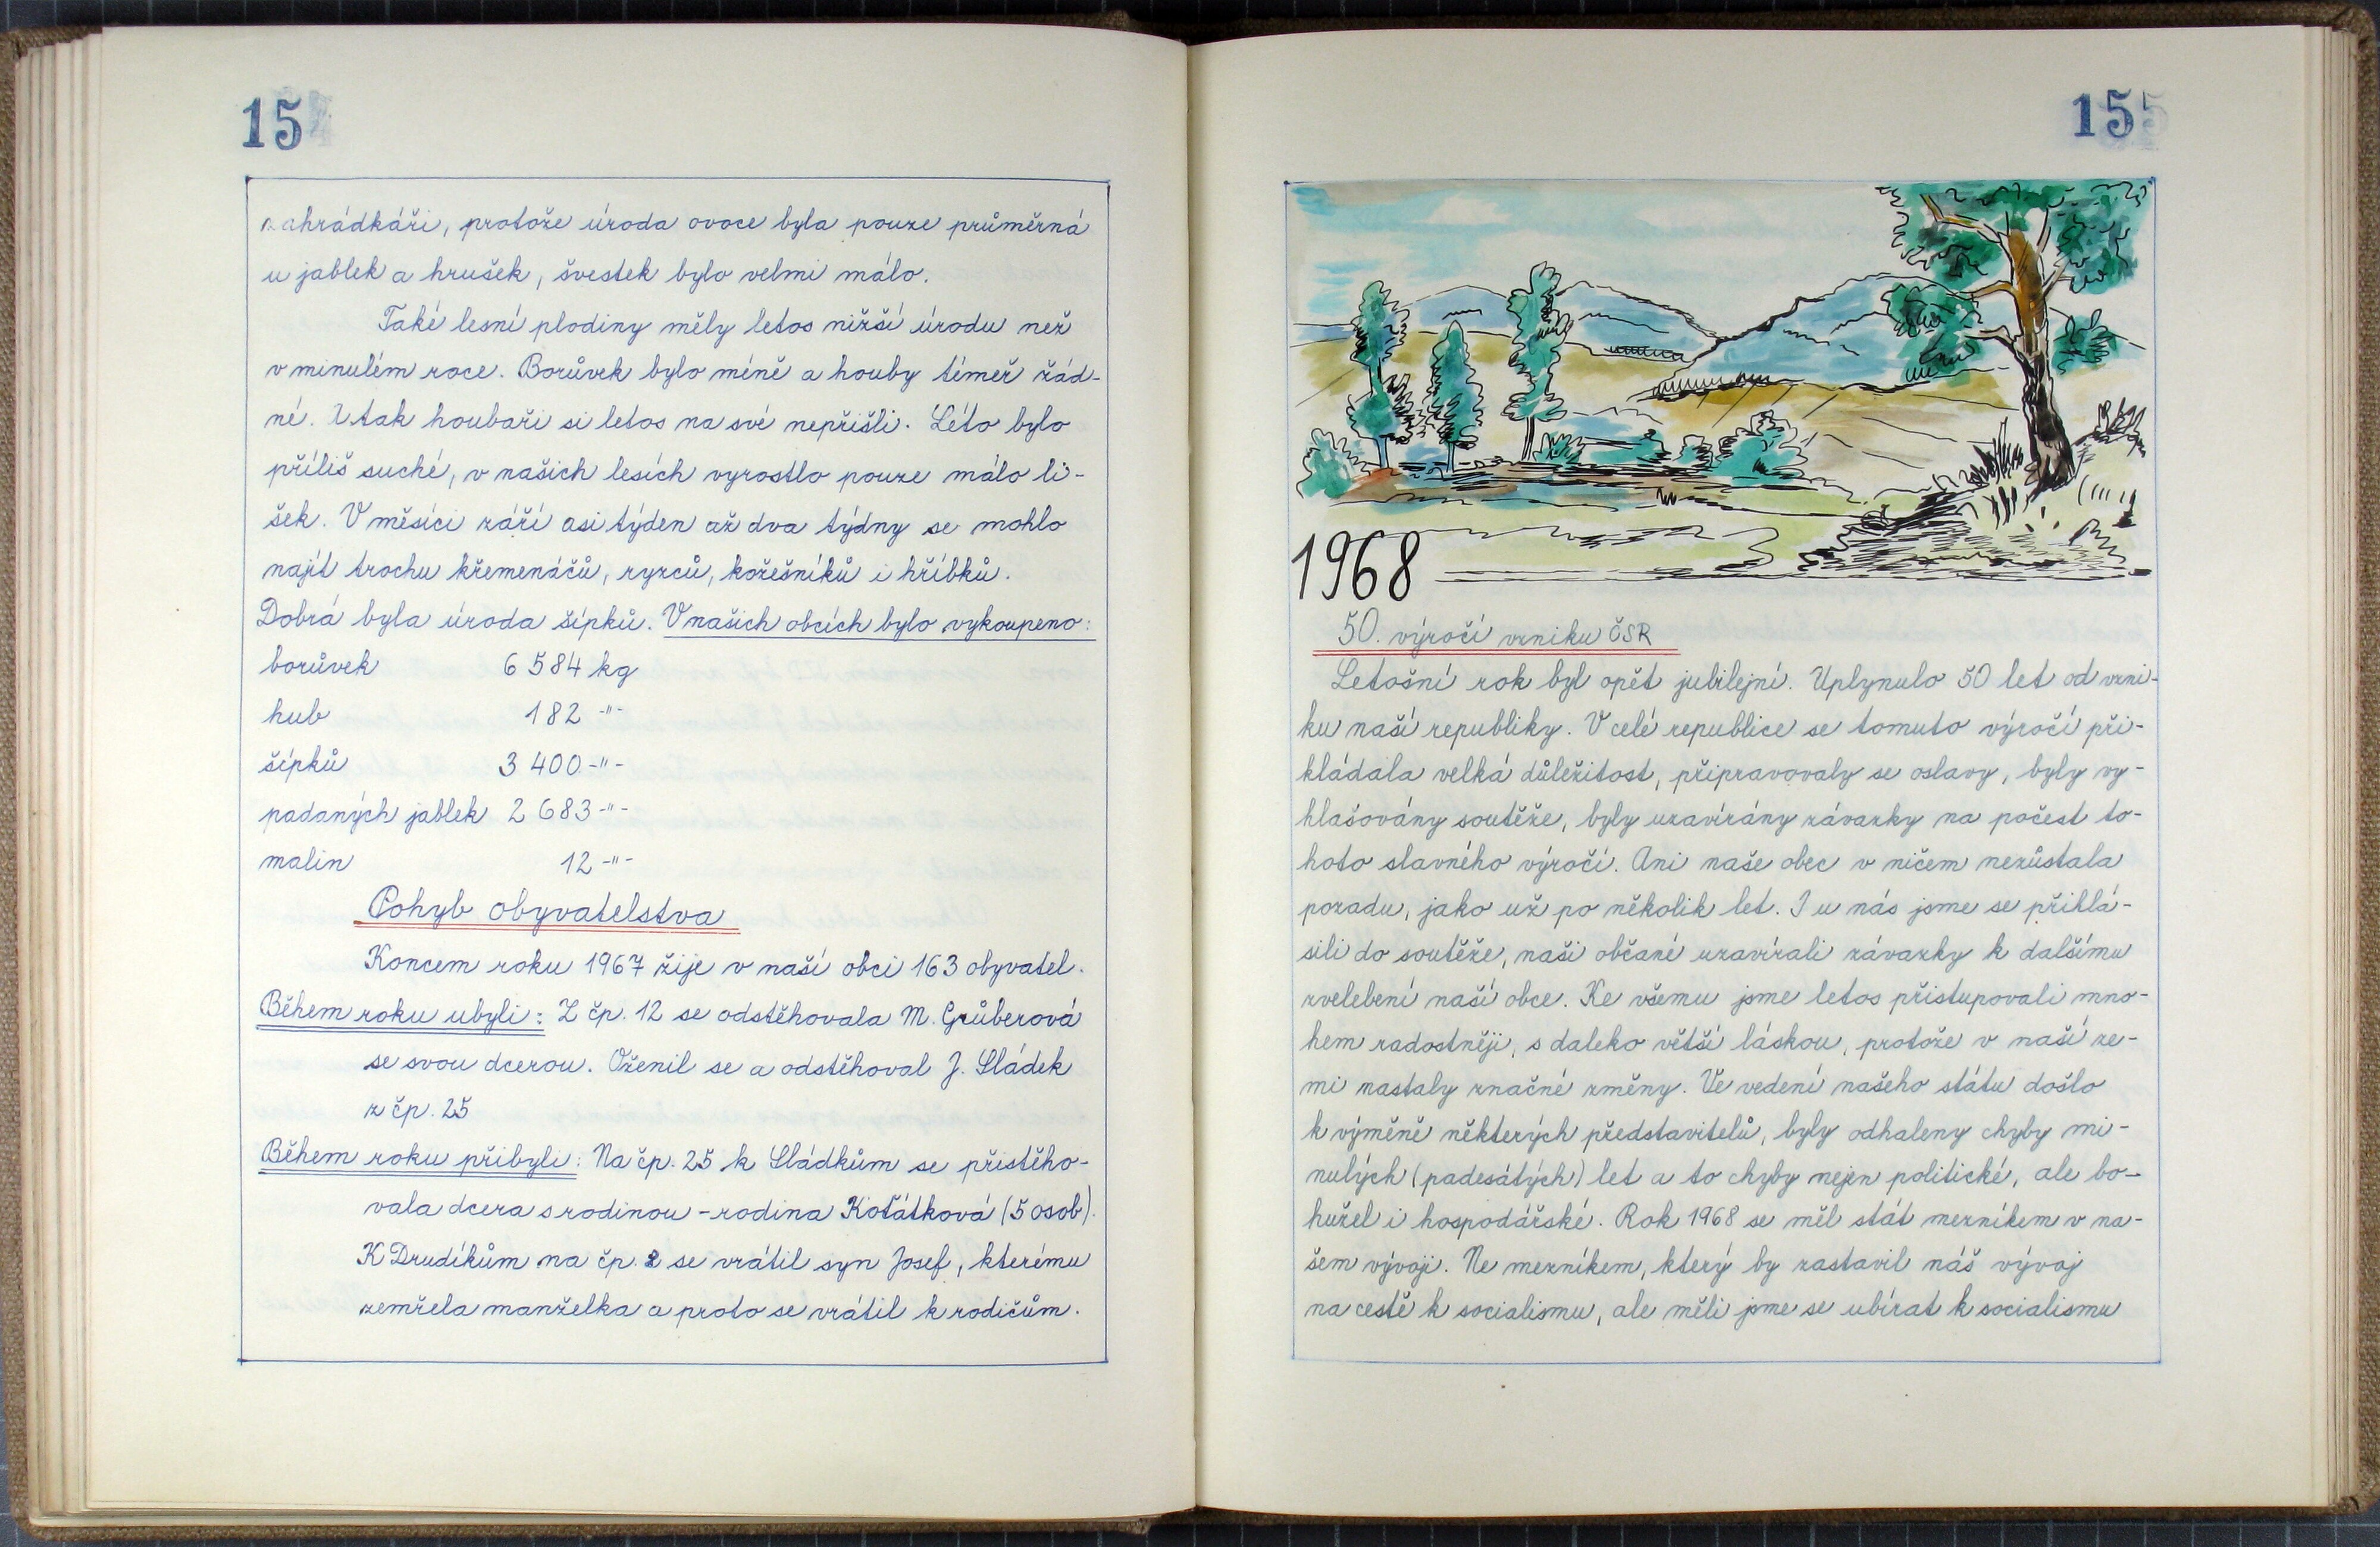 154
zahrádkáři, protože úroda ovoce byla pouze průměrná
u jablek a hrušek, švestek bylo velmi málo.
Také lesní plodiny měly letos nižší úrodu než
v minulém roce. Borůvek bylo méně a houby téměř žád-
né. I tak houbaři si letos na své nepřišli. Léto bylo
příliš suché, v našich lesích vyrostlo pouze málo li-
šek. V měsíci září asi týden až dva týdny se mohlo
najít trochu křemenáčů, ryzců, kožešníků i hříbků.
Dobrá byla úroda šípků. V našich obcích bylo vykoupeno:
borůvek 6 584 kg
hub 182 -"-
šípků 3 400 -"-
padaných jablek 2 683 -"-
malin 12 -"-
Pohyb obyvatelstva
Koncem roku 1967 žije v naší obci 163 obyvatel.
Během roku ubyli: Z čp. 12 se odstěhovala M. Grůberová
se svou dcerou. Oženil se a odstěhoval J. Sládek
z čp. 25
Během roku přibyli: Na čp. 25 k Sládkům se přistěho-
vala dcera s rodinou - rodina Koťátková (5 osob).
K Drudíkům na čp. 2 se vrátil syn Josef, kterému
zemřela manželka a proto se vrátil k rodičům.
155
1968
50. výročí vzniku ČSR
Letošní rok byl opět jubilejní. Uplynulo 50 let od vzni-
ku naší republiky. V celé republice se tomuto výročí při-
kládala velká důležitost, připravovaly se oslavy, byly vy-
hlašovány soutěže, byly uzavírány závazky na počest to-
hoto slavného výročí. Ani naše obec v ničem nezůstala
pozadu, jako už po několik let. I u nás jsme se přihlá-
sili do soutěže, naši občané uzavírali závazky k dalšímu
zvelebení naší obce. Ke všemu jsme letos přistupovali mno-
hem radostněji, s daleko větší láskou, protože v naší ze-
mi nastaly značné změny. Ve vedení našeho státu došlo
k výměně některých představitelů, byly odhaleny chyby mi-
nulých (padesátých) let a to chyby nejen politické, ale bo-
hužel i hospodářské. Rok 1968 se měl stát mezníkem v na-
šem vývoji. Ne mezníkem, který by zastavil náš vývoj
na cestě k socialismu, ale měli jsme se ubírat k socialismu